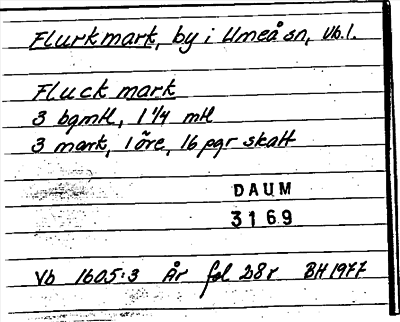 Flurkmark, by i Umeå sn, Vb.l.
Fluck mark
3 bgmtl, 1 1/4 mtl
3 mark, 1 öre, 16 pgr skatt
DAUM
3169
Vb 1605:3 År fol 28r BH 1977